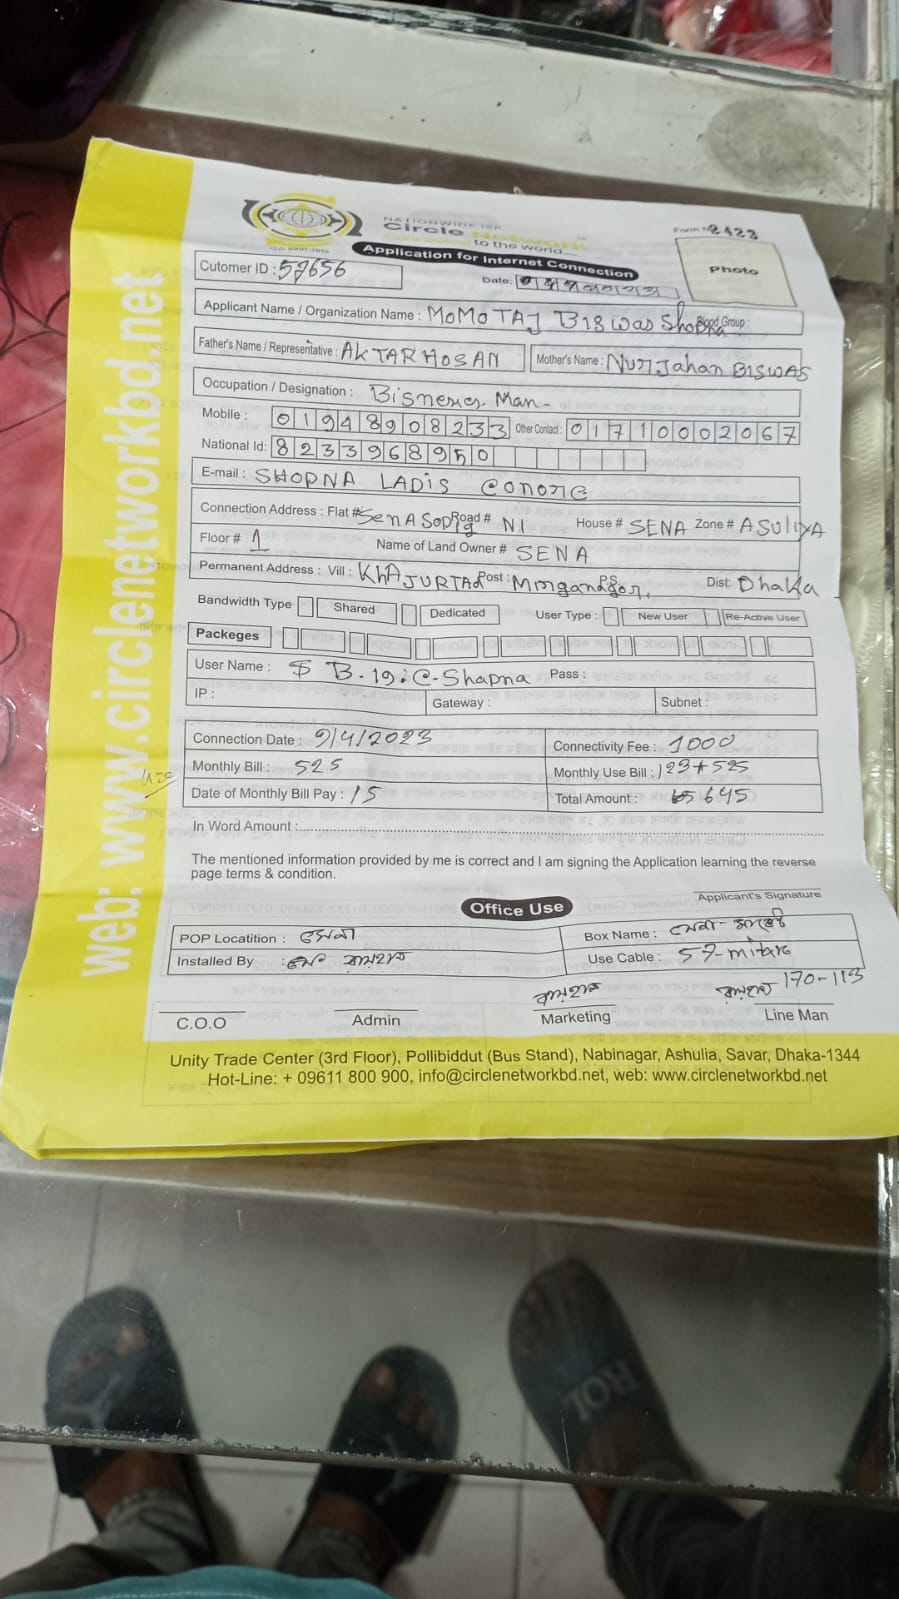 web: www.circlenetworkbd.net
NATIONWIDE ISP
Circle Network
to the world
ISO 9001:2015
Form # 2423
Application for Internet Connection
Photo
Cutomer ID : 57656
Date:
Applicant Name / Organization Name : MOMOTAJ BISWAS Shopna Blood Group :
Father's Name / Representative : AKTAR HOSAN Mother's Name : Nurjahan BISWAS
Occupation / Designation : Bisneses Man-
Mobile : 01948908233 Other Contact : 01710002067
National Id: 8233968950
E-mail : SHOPNA LADIS
Connection Address : Flat # Road # N1 House # SENA Zone # ASULIYA
Floor # 1 Name of Land Owner # SENA
Permanent Address : Vill : Post : P.S. Dist: Dhaka
Bandwidth Type Shared Dedicated User Type : New User Re-Active User
Packeges
User Name : B.19:C-Shapna Pass :
IP : Gateway : Subnet :
Connection Date : 9/4/2023 Connectivity Fee : 1000
Monthly Bill : 525 Monthly Use Bill : 123+525
Date of Monthly Bill Pay : 15 Total Amount : 645
In Word Amount :
The mentioned information provided by me is correct and I am signing the Application learning the reverse
page terms & condition.
Applicant's Signature
Office Use
POP Locatition : সেনা Box Name :
Installed By : Use Cable : 57-
170-113
C.O.O Admin Marketing Line Man
Unity Trade Center (3rd Floor), Pollibiddut (Bus Stand), Nabinagar, Ashulia, Savar, Dhaka-1344
Hot-Line: + 09611 800 900, info@circlenetworkbd.net, web: www.circlenetworkbd.net
ROL